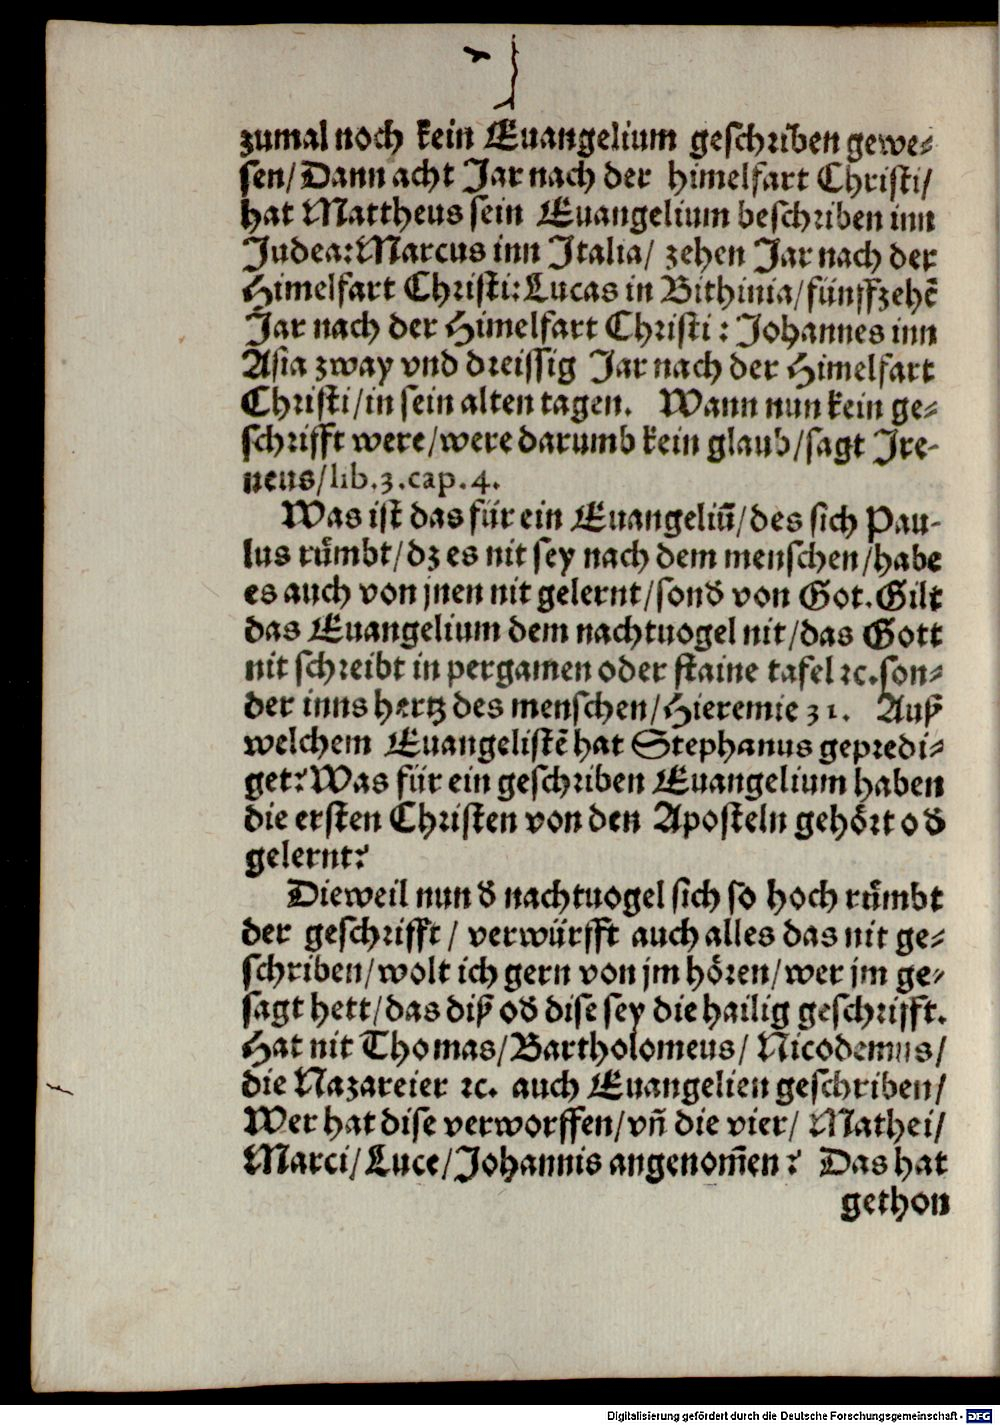 zumal noch kein Euangelium geschriben gewe⸗
sen/Dann acht Jar nach der himelfart Christi/
hat Mattheus sein Euangelium beschriben inn
Judea:Marcus inn Italia/ zehen Jar nach der
Himelfart Christi:Lucas in Bithinia/fünffzehẽ
Jar nach der Himelfart Christi : Johannes inn
Asia zway vnd dreissig Jar nach der Himelfart
Christi/in sein alten tagen. Wann nun kein ge⸗
schrifft were/were darumb kein glaub/sagt Ire-
neus/lib.3.cap.4.
Was ist das für ein Euangeliũ/des sich Pau-
lus růmbt/dz es nit sey nach dem menschen/habe
es auch von jnen nit gelernt/sonď von Got.Gilt
das Euangelium dem nachtuogel nit/das Gott
nit schreibt in pergamen oder staine tafel ꝛc.son⸗
der inns hertz des menschen/Hieremie 31. Auß
welchem Euangelistẽ hat Stephanus gepredi⸗
get?Was für ein geschriben Euangelium haben
die ersten Christen von den Aposteln gehört oď
gelernt?
Dieweil nun ď nachtuogel sich so hoch růmbt
der geschrifft / verwürfft auch alles das nit ge⸗
schriben/wolt ich gern von jm hören/wer jm ge⸗
sagt hett/das diß oď dise sey die hailig geschrifft.
Hat nit Thomas/Bartholomeus/ Nicodemus/
die Nazareier ꝛc. auch Euangelien geschriben/
Wer hat dise verworffen/vñ die vier/ Mathei/
Marci/Luce/Johannis angenom̃en? Das hat
gethon
Digitalisierung gefördert durch die Deutsche Forschungsgemeinschaft - DFG